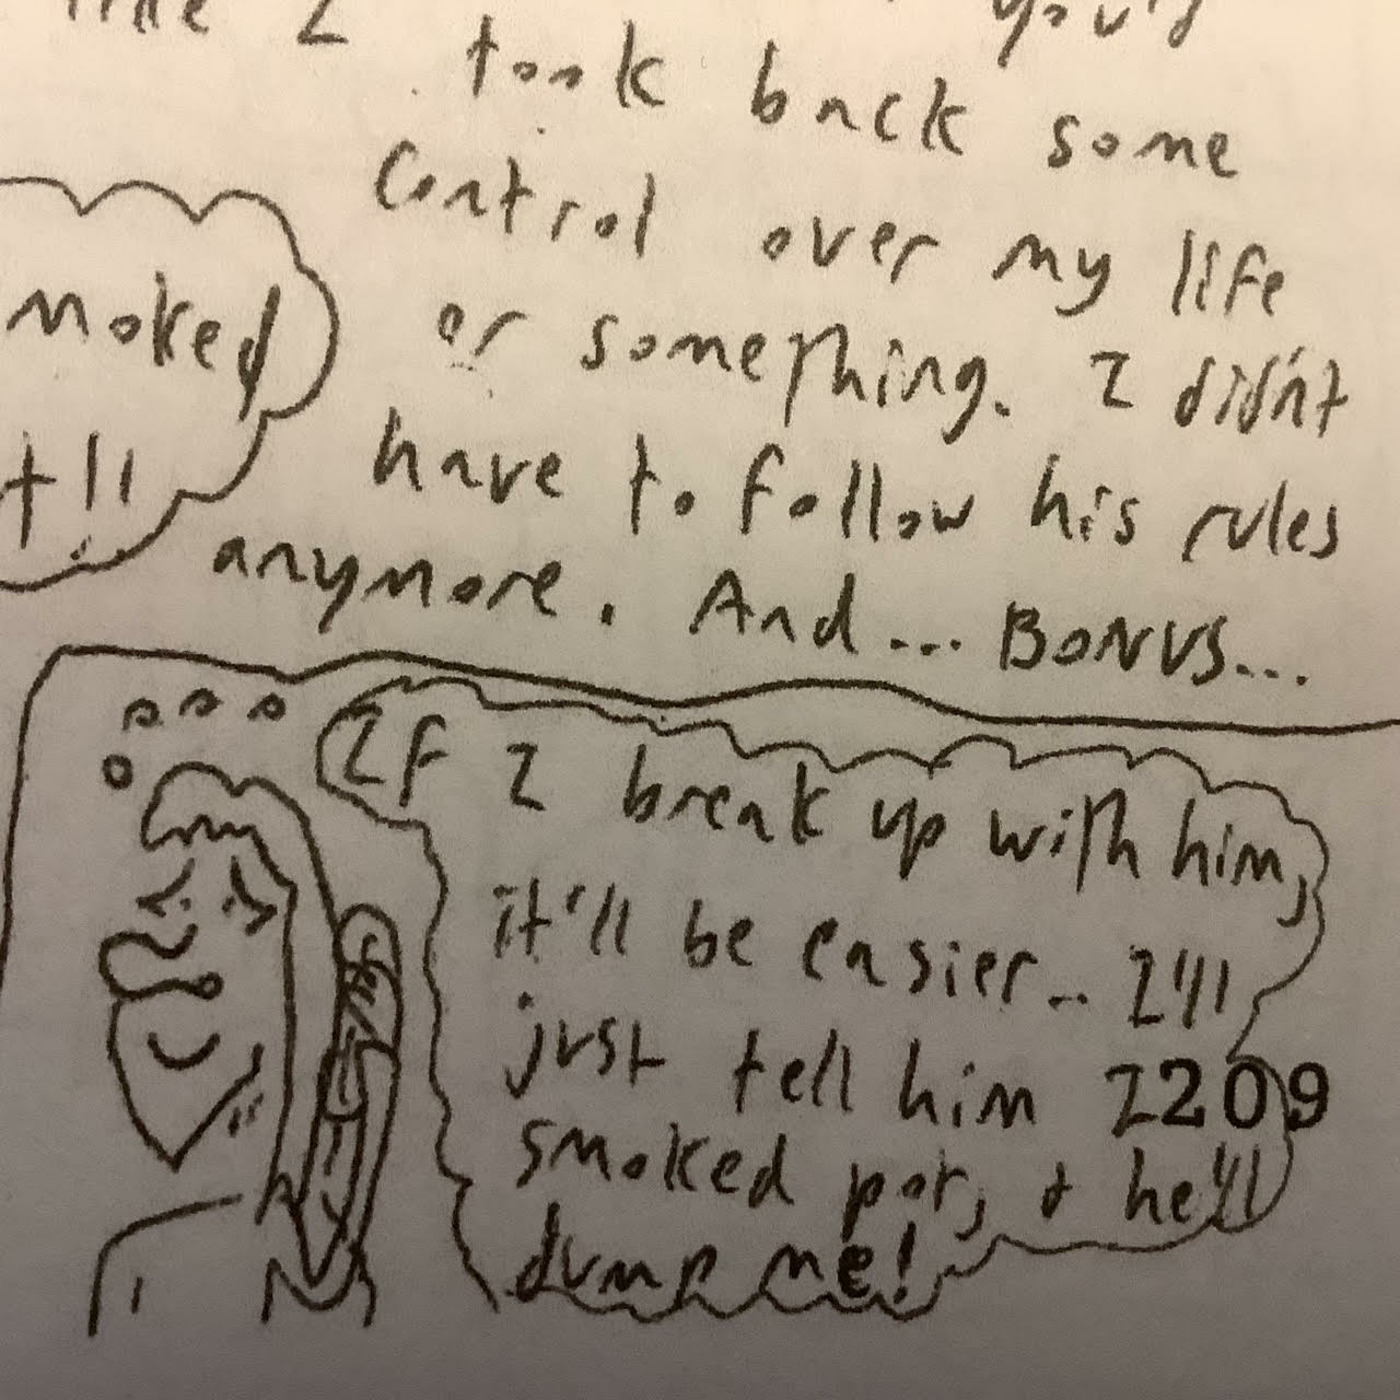 I you'd
took back some
control over my life
or something. I didn't
have to follow his rules
anymore. And... BONUS...
moked
t!!
If I break up with him,
it'll be easier... I'll
just tell him I 2209
smoked pot, & he'll
dump me!